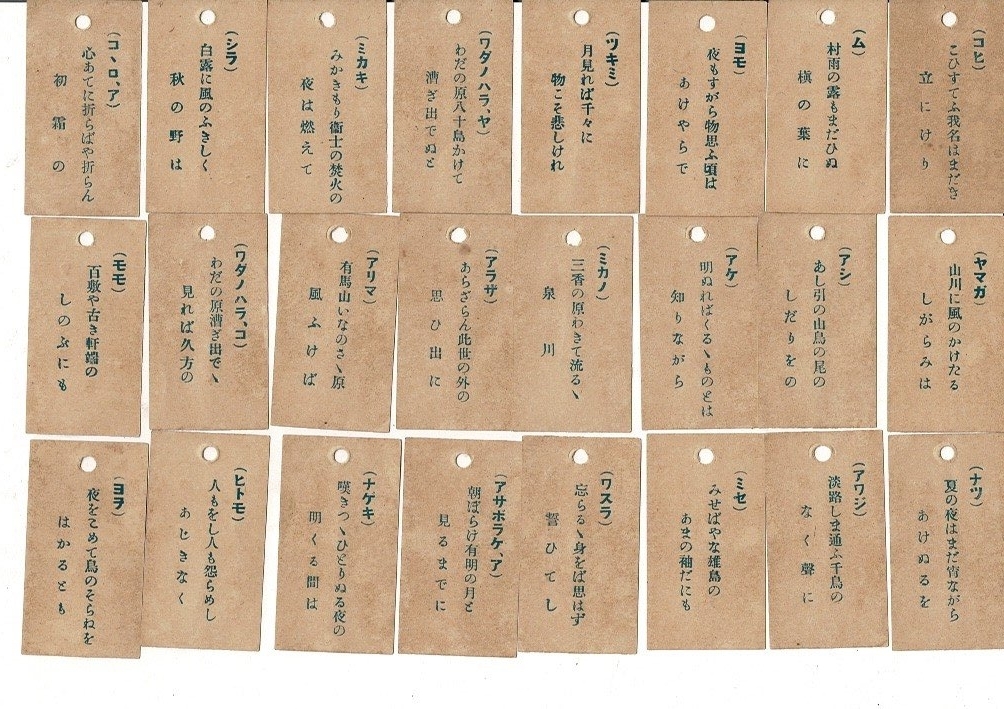 (コヒ)
こひすてふ我名はまだき
立にけり
(ム)
村雨の露もまだひぬ
槇の葉に
(ヨモ)
夜もすがら物思ふ頃は
あけやらで
(ツキミ)
月見れば千々に
物こそ悲しけれ
(ワダノハラ、ヤ)
わだの原八十島かけて
漕ぎ出でぬと
(ミカキ)
みかきもり衞士の焚火の
夜は燃えて
(シラ)
白露に風のふきしく
秋の野は
(コヽロ、ア)
心あてに折らばや折らん
初霜の
(ヤマガ)
山川に風のかけたる
しがらみは
(アシ)
あし引の山鳥の尾の
しだりをの
(アケ)
明ぬればくるゝものとは
知りながら
(ミカノ)
三香の原わきて流るゝ
泉川
(アラザ)
あらざらん此世の外の
思ひ出に
(アリマ)
有馬山いなのさゝ原
風ふけば
(ワダノハラ、コ)
わだの原漕ぎ出でゝ
見れば久方の
(モモ)
百敷や古き軒端の
しのぶにも
(ナツ)
夏の夜はまだ宵ながら
あけぬるを
(アワジ)
淡路しま通ふ千鳥の
なく聲に
(ミセ)
みせばやな雄島の
あまの袖だにも
(ワスラ)
忘らるゝ身をば思はず
誓ひてし
(アサボラケ、ア)
朝ぼらけ有明の月と
見るまでに
(ナゲキ)
嘆きつゝひとりぬる夜の
明くる間は
(ヒトモ)
人もをし人も怨らめし
あじきなく
(ヨヲ)
夜をこめて鳥のそらねを
はかるとも